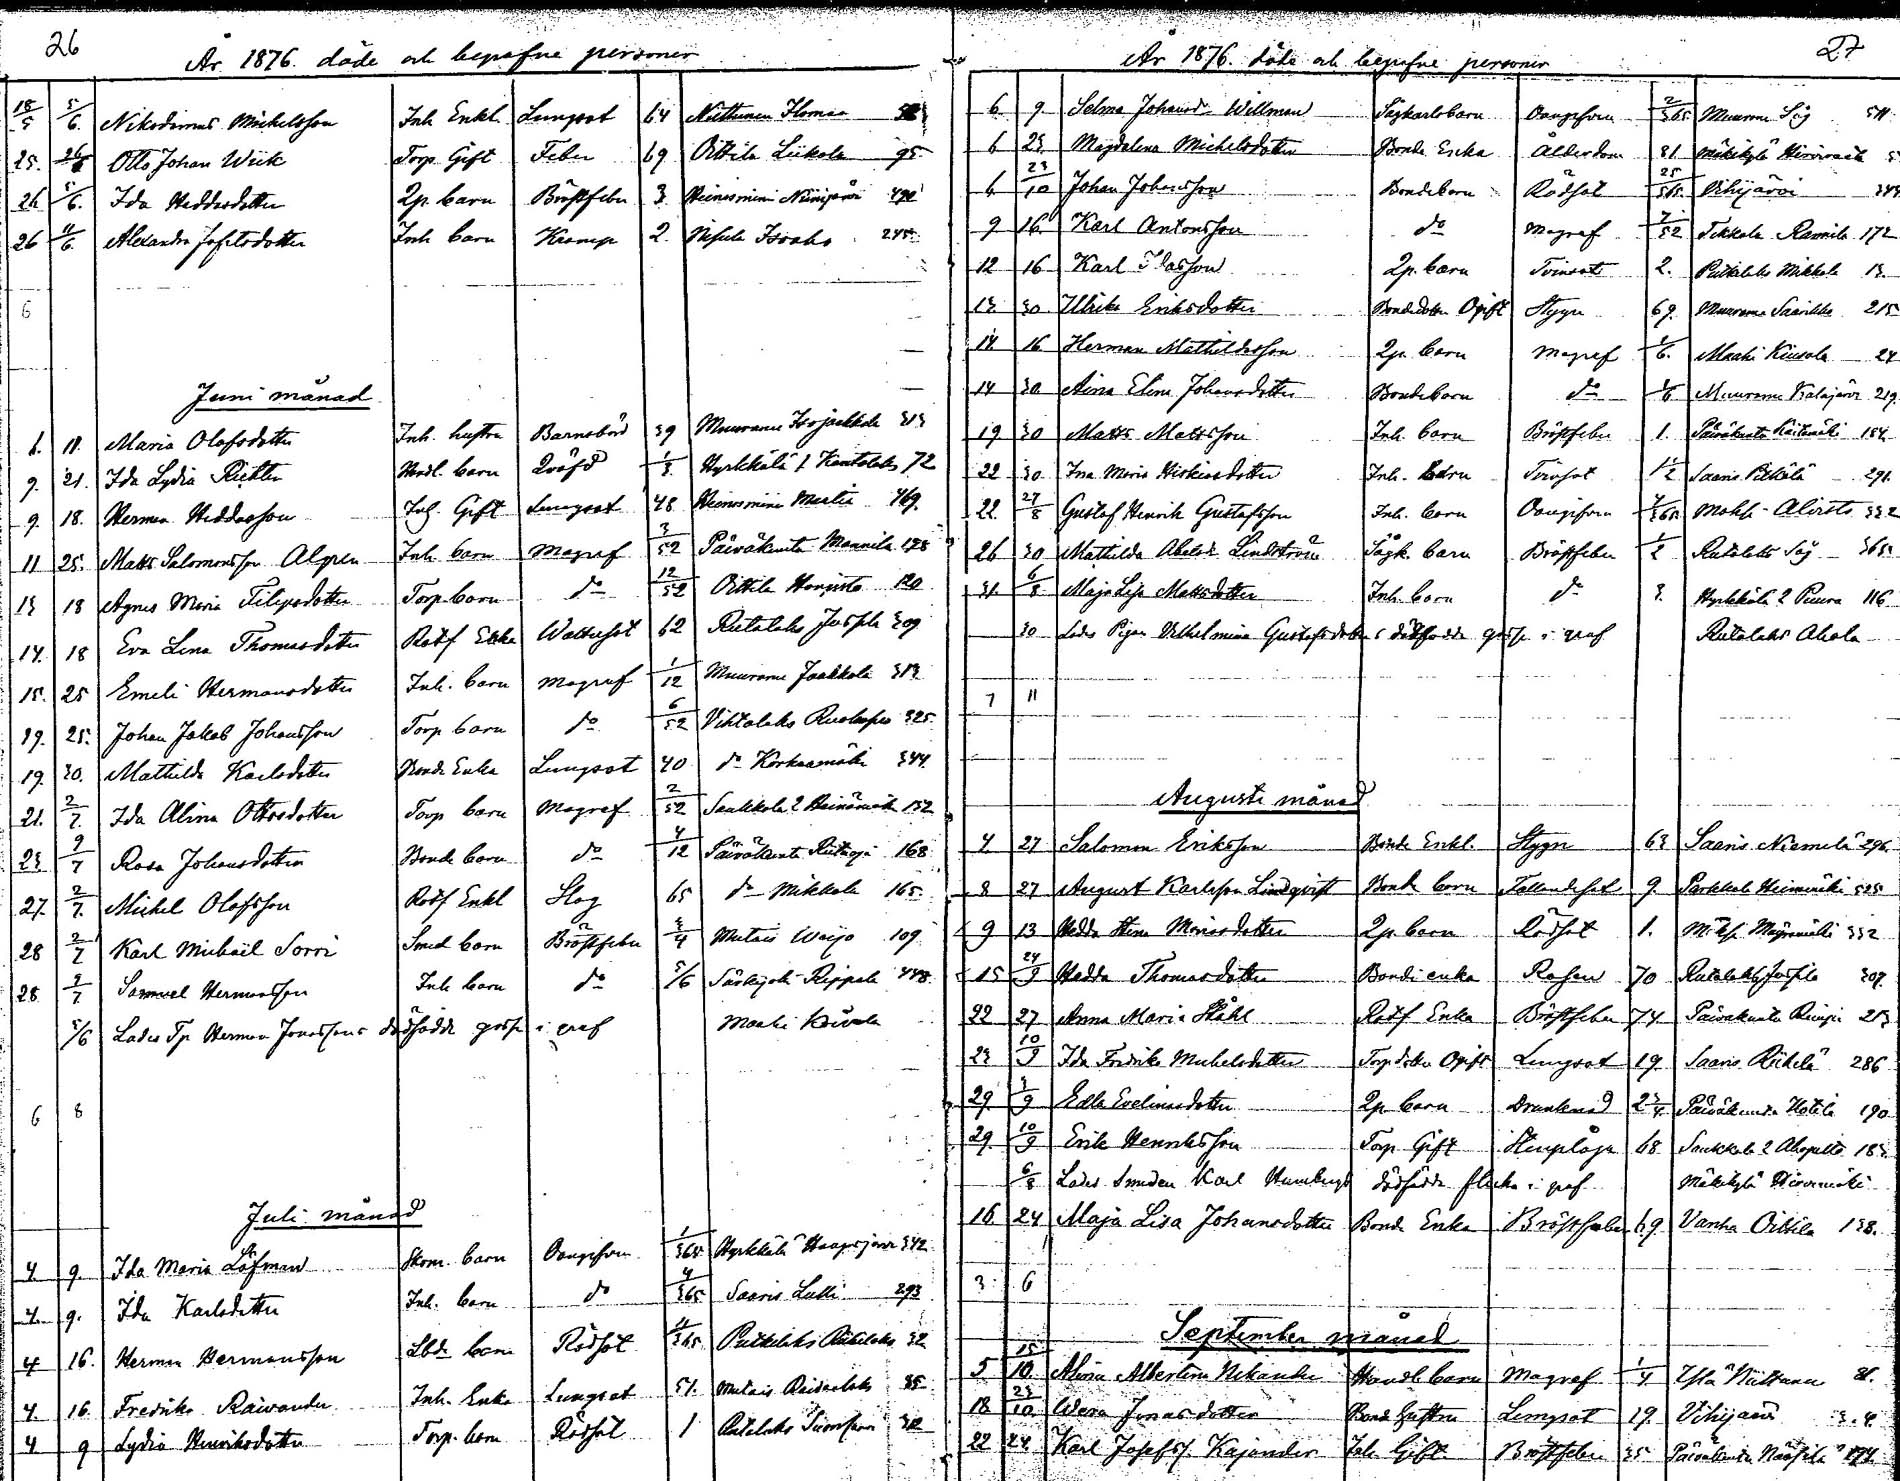 26
År 1876. döde och begrafne personer
18/5 5/6. Nikodimus Michelsson Inh. Enkl. Lungsot 64 Nuttunen
25. Otto Johan Wiik Torp. Gift Feber 69 Oittila Liikola 95
26 5/6. Ida Heddasdotter Qp. barn Bröstfeber 3 Heinosniemi Niinijärvi
26 11/6 Alexandra Josefsdotter Inh. barn Kramp 2. Nisula 245
6
Juni månad
6. 11. Maria Olofsdotter Inh. hustru Barnsbörd 39 Muurame 313
9. 21. Ida Lydia Richter Handl. barn Qväfd 1/3 Hyrkkälä 1 Kantolaks 72
9. 18. Herman Heddasson Inh. Gift Lungsot 48 Heinosniemi Martin 469.
11 25. Matts Salomonsson Alpen Inh. barn magref 3/52 Päiväkunta Mannila
13 18 Agnes Maria Filipsdotter Torp. barn do 12/52 Oittila 120
14. 18 Eva Lena Thomasdotter Rotf Enka Wattusot 62 Rutalaks Juspila 309
15. 25 Emeli Hermansdotter Inh. barn magref 1/12 Muurame Jaakkola 313
19. 25. Johan Jakob Johansson Torp barn do 6/52 Vihtalaks 325
19. 30. Mathilda Karlsdotter Bonde Enka Lungsot 40 do Korkeamäki 344
21. 2/7. Ida Alina Ottosdotter Torp barn Magref 2/52 Saukkola 2 Heinämäki 152
23 9/7 Rosa Johansdotter Bonde barn do 4/12 Päiväkunta 168
27. 2/7. Michel Olofsson Rotf Enkl Slag 65 do Mikkola 165
28 2/7 Karl Michaël Sorri Smed barn Bröstfeber 3/4 Mutais Waijo 109
28. 2/7. Samuel Hermansson Inh barn do 5/6 Särkijoki Reppala 448
5/6 Lades Tp Herman Jonassons dödfödde gosse i graf Maaki
6 8
Juli månad
4 9. Ida Maria Löfman Skom. barn Oangifven 1/365 Hyrkkälä Haapajärvi 342
4. 9. Ida Karlsdotter Inh. barn do 4/365 Saaris Lulli 293
4 16. Herman Hermansson Lbde barn Rödsot 4/365 Putkilaks 32
4 16. Fredrika Raivander Inh. Enka Lungsot 51. Mutais 35
4 9 Lydia Henriksdotter Torp. barn Rödsot 1 Rutalaks
27
År 1876. döde och begrafne personer
6 9. Selma Johansdr Willman Sågkarlsbarn Oangifven 2/365 Muurame Såg 511
6 23 Magdalena Michelsdotter Bonde Enka Ålderdom 81 Mäkikylä Hirvimäki
6 23/10 Johan Johansson Bondebarn Rödsot 25/365 Vihijärvi
9 16 Karl Antonsson do Magref 7/52 Tikkala Rannila 172
12 16 Karl Idasson Qp. barn Tvinsot 2. Putkilaks Mikkola 13.
13. 30. Ulrika Eriksdotter Bondedotter Ogift Stygn 69. Muurame Saarikko 215
14 16 Herman Mathildasson Qp. barn magref 1/6. Maaki Kinsala 24
14 30 Aina Elina Johansdotter Bondebarn do 1/6 Muurame Kalajärvi 219.
19 30 Matts Mattsson Inh. barn Bröstfeber 1. Päiväkunta 154
22 30 Ina Maria Hiskiasdotter Inh. barn Tvinsot 1/2 Saaris Pitkälä 291.
22. 27/8 Gustaf Henrik Gustafsson Inh. barn Oangifven 4/365 332
26 30 Mathilda Abelsdr Lindström Sågk. barn Bröstfeber 1/2 Rutalaks Såg 365
31. 6/8 Maja Lisa Mattsdotter Inh. barn do 3. Hyrkkälä 2 Puura 116
30 Lades Pigan Vilhelmina Gustafsdotters dödfödde gosse i graf Rutalaks Ahola
7 11
Augusti månad
4 27 Salomon Eriksson Bonde Enkl. Stygn 63 Saaris Niemelä 296
8 27 August Karlsson Lindqvist Bonde barn Fallandesot 9. Parkkola Heinimäki 525
9 13 Hedda Stina Mariasdotter Qp. barn Rödsot 1. 332
15 24/9 Hedda Thomasdotter Bonde enka Rosen 70 Rutalaks Juspila 309.
22 27 Anna Maria Ståhl Rotf Enka Bröstfeber 74. Päiväkunta
23 10/9 Ida Fredrika Michelsdotter Torp dotter Ogift Lungsot 19. Saaris Rihelä 286
29. 3/9 Edla Evelinasdotter Qp barn Drunknad 2 3/4 Päiväkunta Hotila 190
29. 10/9 Erik Henriksson Torp Gift Stenplåga 68 Saukkola 2 183
6/8 Lades Smeden Karl Humbergs dödfödde flicka i graf Mäkikylä Hirvimäki
16 24 Maja Lisa Johansdotter Bond Enka Bröstfeber 69 Vanha Oittila 138.
3. 6
September månad
5 15/10. Alina Albertina Nikander Handl barn Magref 1/4 Ylä Nuttunen 81.
18 23/10 Wera Jonasdotter Bond Hustru Lungsot 19. Vihijärvi
22 24. Karl Josefss. Kajander Inh. Gift. Bröstfeber 35 Päiväkunta 174